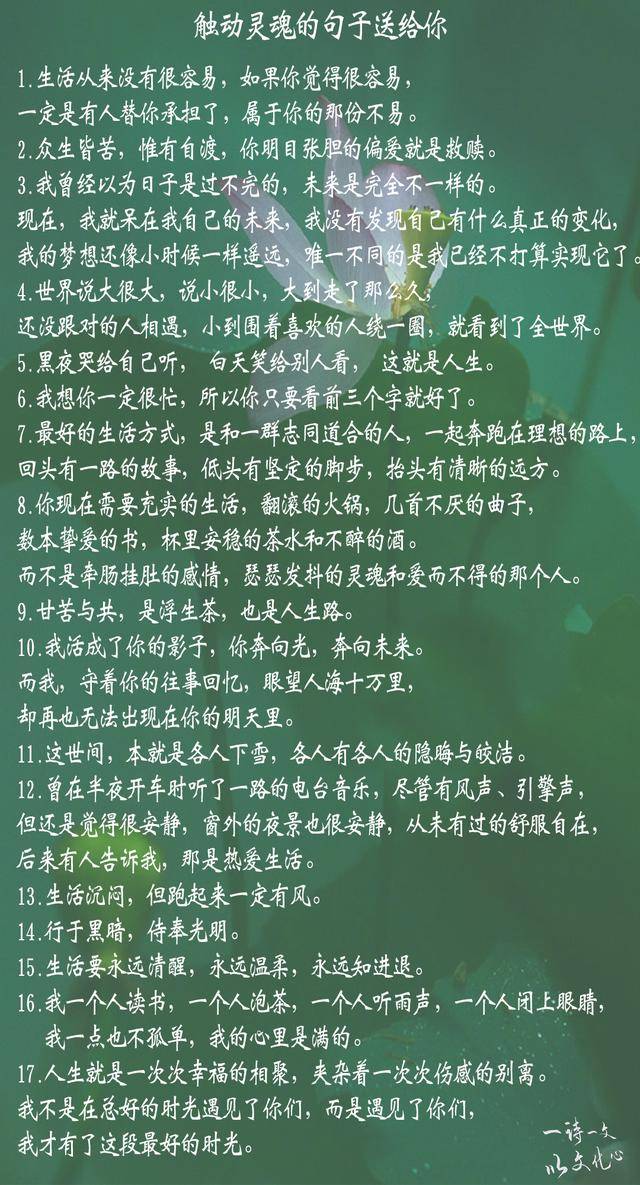 触动灵魂的句子送给你
1.生活从来没有很容易，如果你觉得很容易，
一定是有人替你承担了，属于你的那份不易。
2.众生皆苦，惟有自渡，你明目张胆的偏爱就是救赎。
3.我曾经以为日子是过不完的，未来是完全不一样的。
现在，我就呆在我自己的未来，我没有发现自己有什么真正的变化，
我的梦想还像小时候一样遥远，唯一不同的是我已经不打算实现它了。
4.世界说大很大，说小很小，大到走了那么久，
还没跟对的人相遇，小到围着喜欢的人绕一圈，就看到了全世界。
5.黑夜哭给自己听， 白天笑给别人看， 这就是人生。
6.我想你一定很忙，所以你只要看前三个字就好了。
7.最好的生活方式，是和一群志同道合的人，一起奔跑在理想的路上，
回头有一路的故事，低头有坚定的脚步，抬头有清晰的远方。
8.你现在需要充实的生活，翻滚的火锅，几首不厌的曲子，
数本挚爱的书，杯里安稳的茶水和不醉的酒。
而不是牵肠挂肚的感情，瑟瑟发抖的灵魂和爱而不得的那个人。
9.甘苦与共，是浮生茶，也是人生路。
10.我活成了你的影子，你奔向光，奔向未来。
而我，守着你的往事回忆，眼望人海十万里，
却再也无法出现在你的明天里。
11.这世间，本就是各人下雪，各人有各人的隐晦与皎洁。
12.曾在半夜开车时听了一路的电台音乐，尽管有风声、引擎声，
但还是觉得很安静，窗外的夜景也很安静，从未有过的舒服自在，
后来有人告诉我，那是热爱生活。
13.生活沉闷，但跑起来一定有风。
14.行于黑暗，侍奉光明。
15.生活要永远清醒，永远温柔，永远知进退。
16.我一个人读书，一个人泡茶，一个人听雨声，一个人闭上眼睛，
我一点也不孤单，我的心里是满的。
17.人生就是一次次幸福的相聚，夹杂着一次次伤感的别离。
我不是在总好的时光遇见了你们，而是遇见了你们，
我才有了这段最好的时光。
一诗一文
以文化心